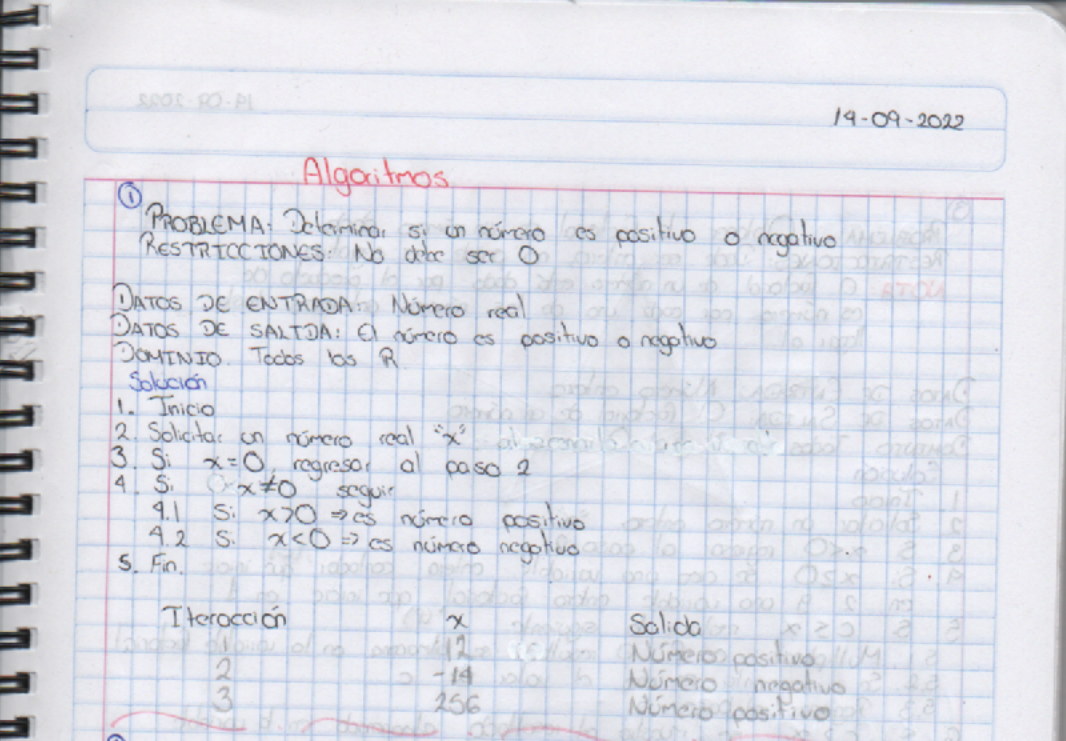 19-09-2022
Algoritmos
① PROBLEMA: Determinar si un número es positivo o negativo
RESTRICCIONES: No debe ser 0
DATOS DE ENTRADA: Número real
DATOS DE SALIDA: El número es positivo o negativo
DOMINIO. Todos los R
Solución
1. Inicio
2. Solicitar un número real "x"
3. Si x=0, regresar al paso 2
4. Si x≠0 seguir
4.1 Si x>0 ⇒ es número positivo
4.2 Si x<0 ⇒ es número negativo
5. Fin.
Iteracción x Salida
1 12 Número positivo
2 -14 Número negativo
3 256 Número positivo